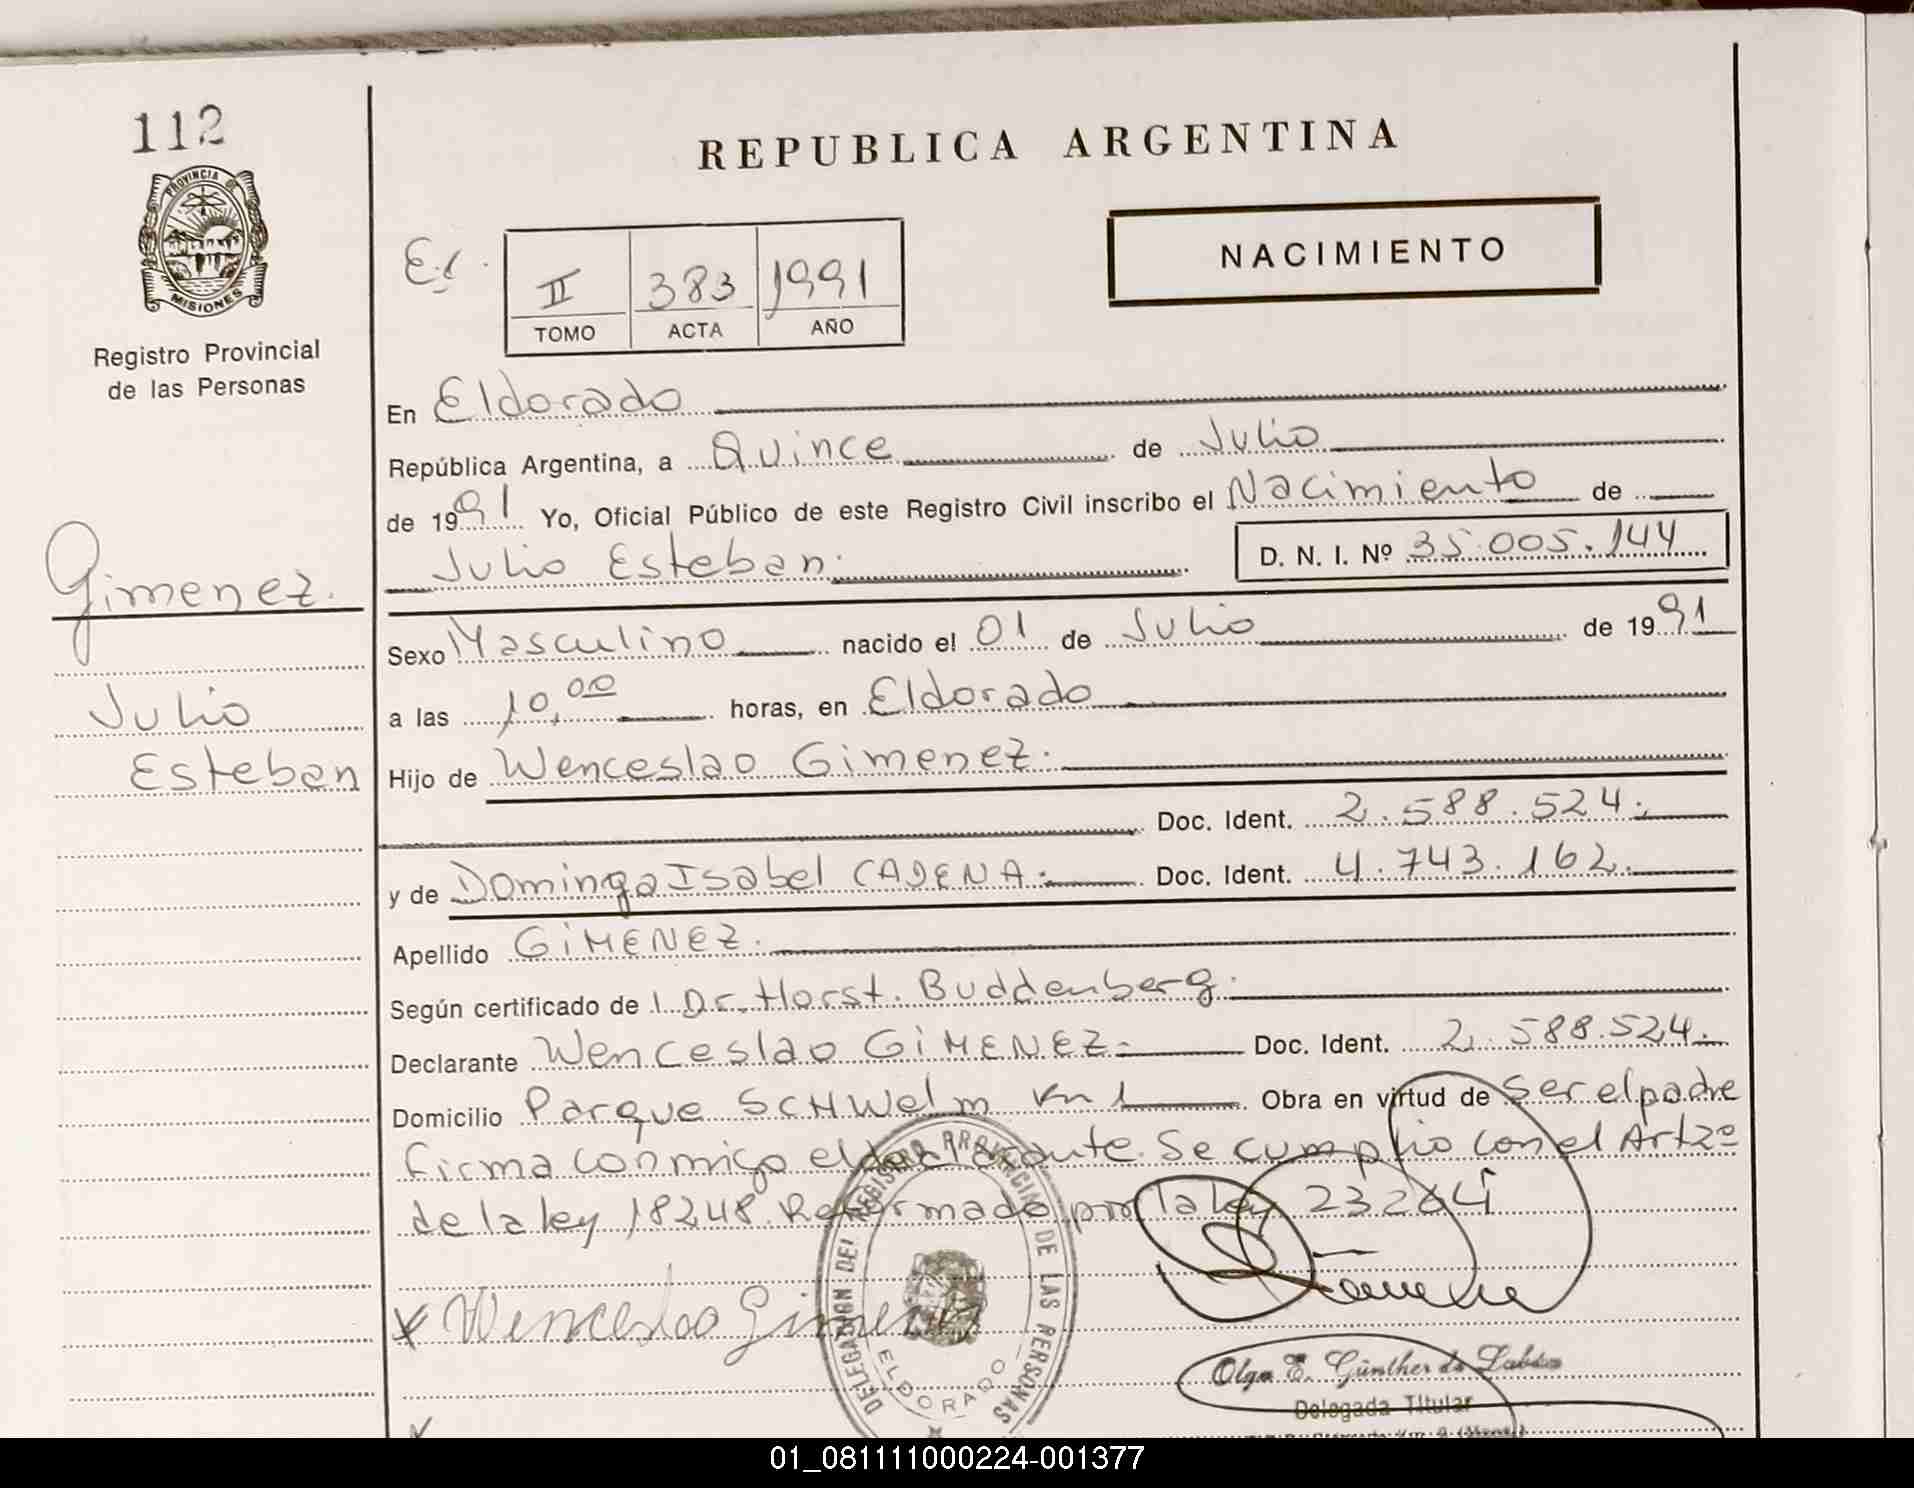 112
REPUBLICA ARGENTINA
PROVINCIA DE
MISIONES
Registro Provincial
de las Personas
El.
II 383 1991
TOMO ACTA AÑO
NACIMIENTO
En Eldorado
República Argentina, a Quince de Julio
de 1991 Yo, Oficial Público de este Registro Civil inscribo el Nacimiento de
Julio Esteban. D. N. I. Nº 35.005.144
Gimenez.
Julio
Esteban
Sexo Masculino nacido el 01 de Julio de 1991
a las 10,00 horas, en Eldorado
Hijo de Wenceslao Gimenez.
Doc. Ident. 2.588.524.
y de Dominga Isabel CADENA. Doc. Ident. 4.743.162.
Apellido GiMENEZ.
Según certificado de l Dr. Horst. Buddenberg.
Declarante Wenceslao GiMENEZ. Doc. Ident. 2.588.524.
Domicilio Parque SCHWelm Km 1 Obra en virtud de Ser el padre
firma conmigo el declarante. Se cumplio con el Art 2º
de la ley 18248. Reformado por la ley 23264
x Wenceslao Gimenez
DELEGACION DEL REGISTRO PROVINCIAL DE LAS PERSONAS
ELDORADO
Olga E. Günther de
Delegada Titular
01_081111000224-001377